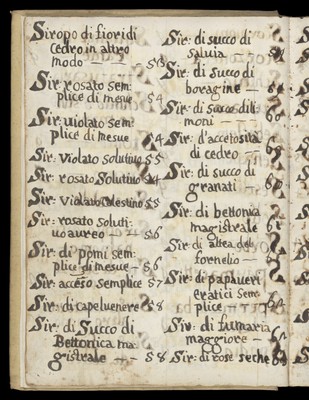 Siropo di fiori di
cedro in altro
modo - - 53
Sir: rosato sem:
plice di mesue 54
Sir: violato sem:
plice di mesue 54
Sir: violato solutiuo 55
Sir: rosato Solutiuo
Sir: violato Celestino 55
Sir: rosato soluti:
uo aureo - - 56
Sir: di pomi sem:
plice di mesue - 56
Sir: acceso semplice 57
Sir: di capeluenere 58
Sir: di Succo di
Bettonica ma:
gistrale - - 58
Sir: di succo di
saluia - -
Sir: di succo di
boragine -
Sir: di succo di li:
moni - -
Sir: d'accetosita
di cedro -
Sir: di succo di
granati -
Sir: di bettonica
magistrale
Sir: di altea del
fornelio -
Sir: di papaueri
eratici sem:
plice -
Sir: di fumaria
maggiore -
Sir: di rose seche